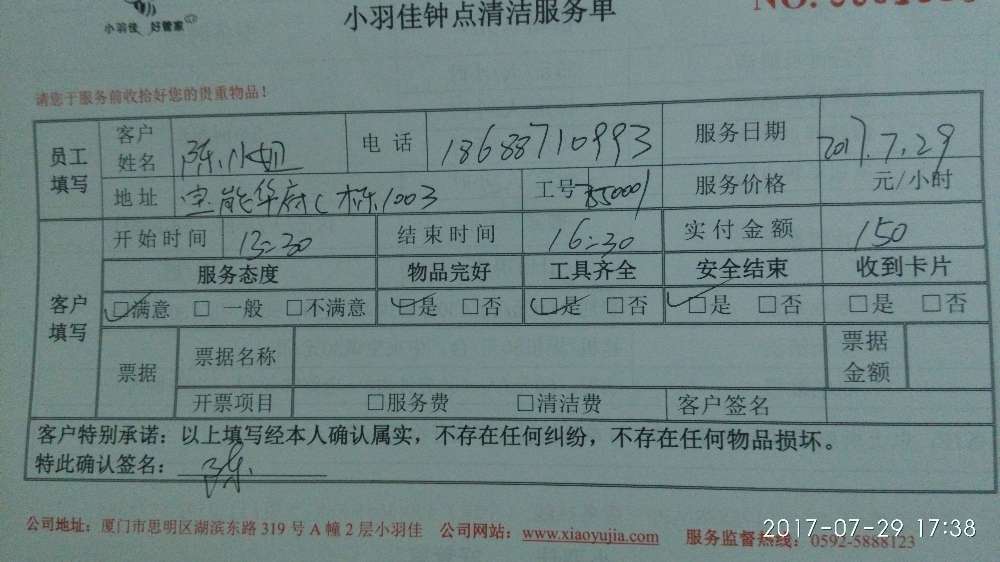 小羽佳 好管家
小羽佳钟点清洁服务单
NO.
请您于服务前收拾好您的贵重物品！
员工填写 客户姓名 陈小姐 电话 18688710993 服务日期 2017.7.29
地址 宝能华府C栋1003 工号 85001 服务价格 元/小时
客户填写 开始时间 13:30 结束时间 16:30 实付金额 150
服务态度 物品完好 工具齐全 安全结束 收到卡片
□满意 □一般 □不满意 □是 □否 □是 □否 □是 □否 □是 □否
票据 票据名称 票据金额
开票项目 □服务费 □清洁费 客户签名
客户特别承诺：以上填写经本人确认属实，不存在任何纠纷，不存在任何物品损坏。
特此确认签名： 陈
公司地址：厦门市思明区湖滨东路319号A幢2层小羽佳 公司网站：www.xiaoyujia.com 服务监督热线：0592-5888123
2017-07-29 17:38